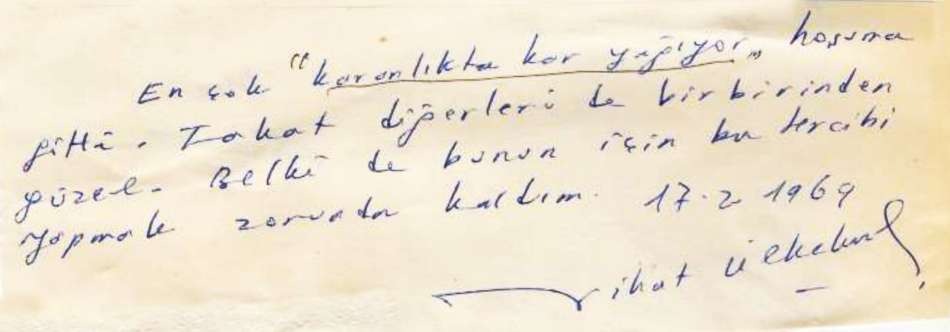 En çok "karanlıkta kar yağıyor„ hoşuma
gitti. Fakat diğerleri de birbirinden
güzel. Belki de bunun için bu tercihi
yapmak zorunda kaldım. 17.2 1969
Nihat